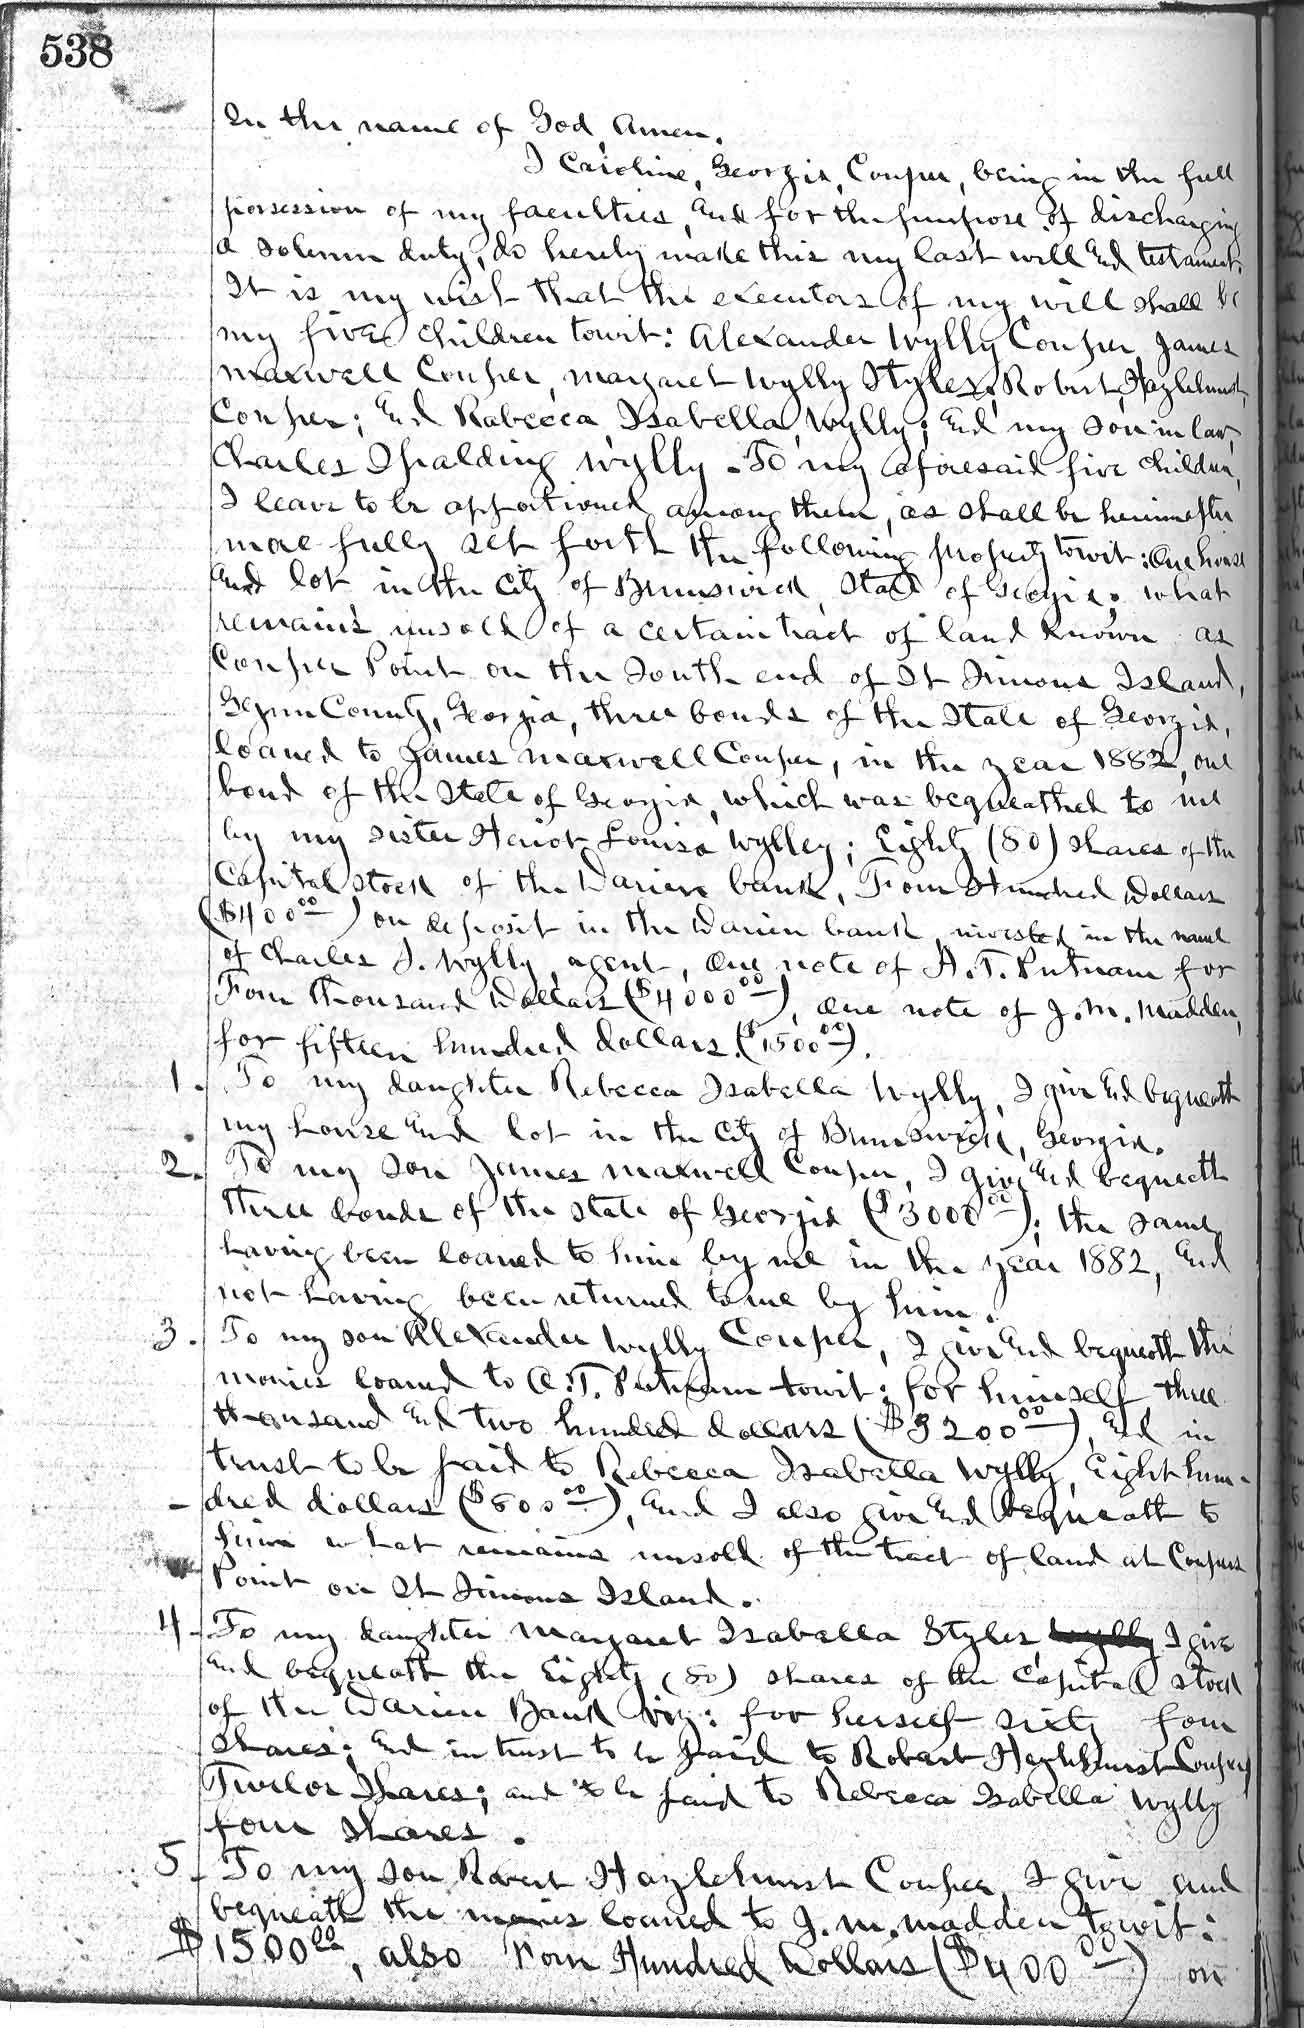 538
In the name of God, Amen.
I Caroline, Georgia, Couper, being in the full
possession of my faculties, and for the purpose of discharging
a solemn duty, do hereby make this my last will and testament.
It is my wish that the executors of my will shall be
my five children towit: Alexander Wylly Couper, James
Maxwell Couper, Margaret Wylly Styles, Robert Hazlehurst
Couper; and Rabecca Isabella Wylly; and my son in law,
Charles Spalding Wylly - To my aforesaid five children,
I leave to be apportioned among them, as shall be hereinafter
more fully set forth the following property towit: One house
and lot in the city of Brunswick, State of Georgia; what
remains unsold of a certain tract of land known as
Couper Point on the South end of St Simons Island,
Glynn County, Georgia, three bonds of the State of Georgia,
loaned to James Maxwell Couper, in the year 1882, one
bond of the State of Georgia, which was bequeathed to me
by my sister Heriot Louisa Wylley; Eighty (80) shares of the
Capital stock of the Darien bank, Four Hundred Dollars
($400.00) on deposit in the Darien bank, invested in the name
of Charles S. Wylly, agent, One note of A.T. Putnam for
Four Thousand Dollars ($4000.00), One note of J.M. Madden,
for fifteen hundred dollars. ($1500.00).
1. To my daughter Rebecca Isabella Wylly, I give and bequeath
my house and lot in the city of Brunswick, Georgia.
2. To my son James Maxwell Couper, I give and bequeath
three bonds of the state of Georgia ($3000.00); the same
having been loaned to him by me in the year 1882, and
not having been returned to me by him.
3. To my son Alexander Wylly Couper, I give and bequeath the
monies loaned to A.T. Putnam towit; for himself three
thousand and two hundred dollars ($3200.00), and in
trust to be paid to Rebecca Isabella Wylly, Eight hun-
-dred dollars ($800.00), and I also give and bequeath to
him what remains unsold of the tract of land at Coupers
Point on St Simons Island.
4. To my daughter Margaret Isabella Styles I give
and bequeath the Eighty (80) shares of the Capital stock
of the Darien Bank viz: for herself sixty four
shares; and in trust to be paid to Robert Hazlehurst Couper
Twelve Shares; and to be paid to Rebecca Isabella Wylly
four shares.
5. To my son Robert Hazlehurst Couper, I give and
bequeath the monies loaned to J.M. Madden towit:
$1500.00, also Four Hundred Dollars ($400.00) on